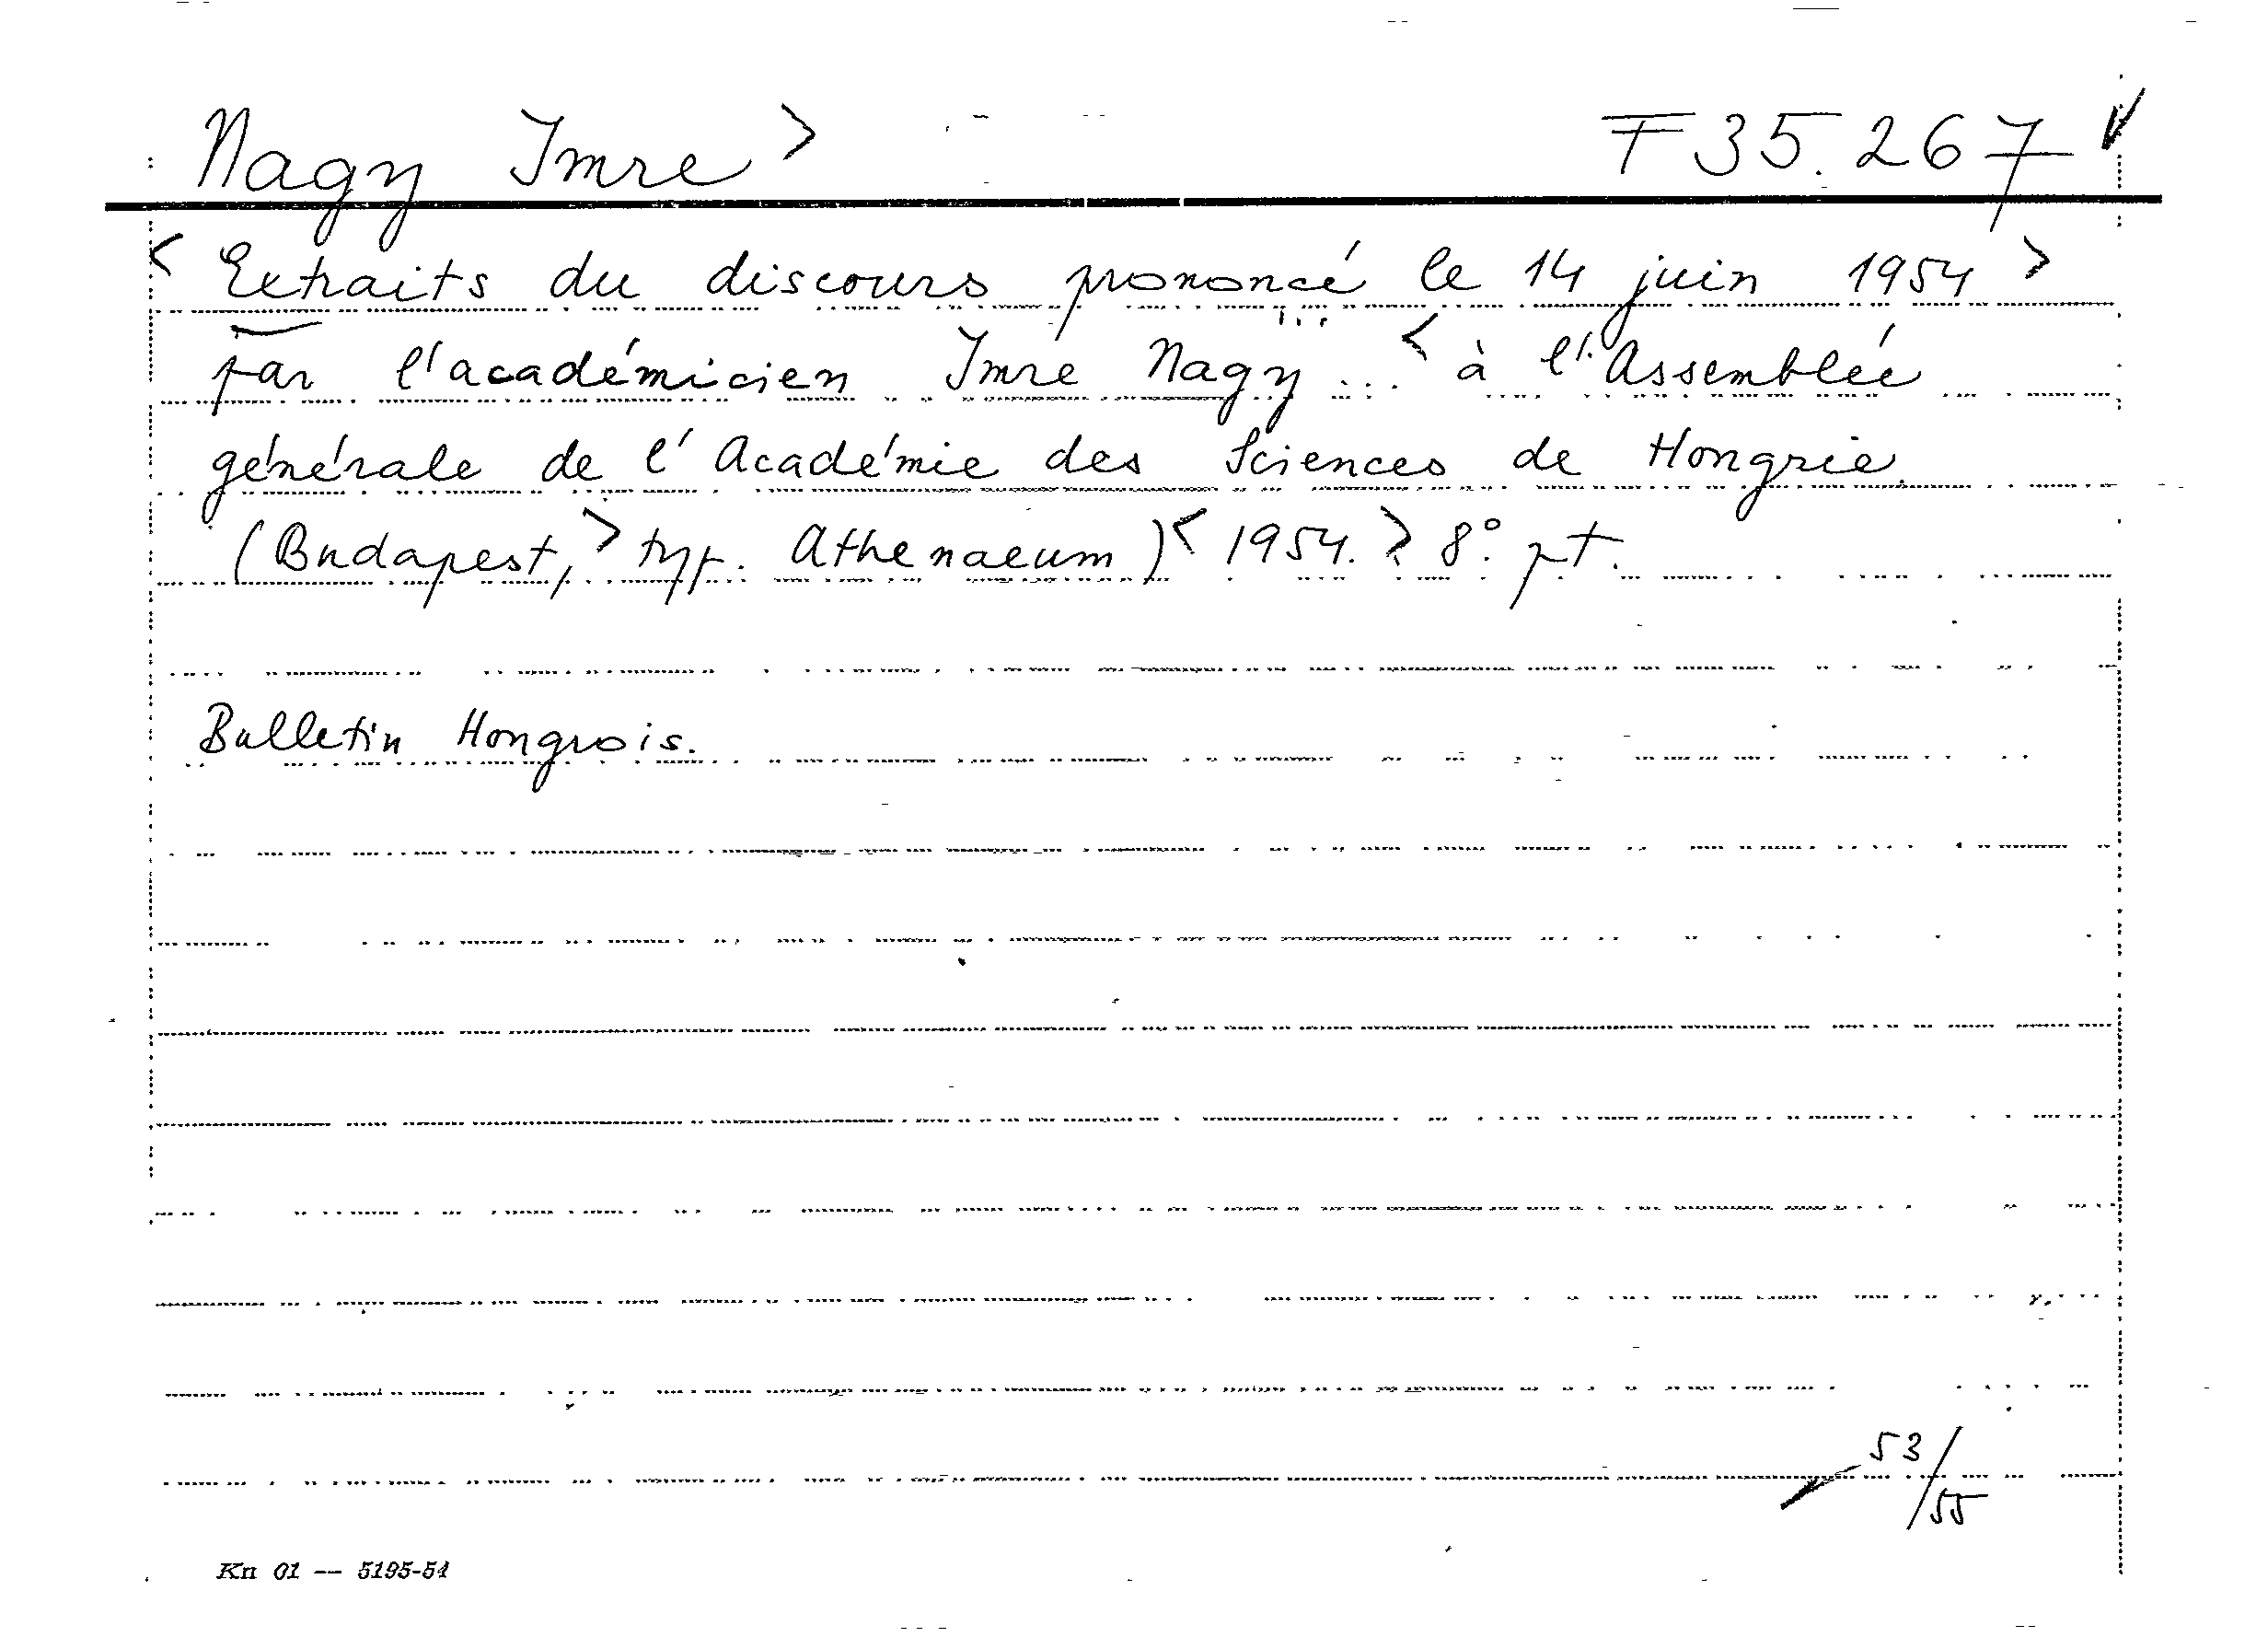 Nagy Imre > F 35.267
< Extraits du discours prononcé le 14 juin 1954 >
par l'académicien Imre Nagy ... < à l'Assemblée
générale de l'Académie des Sciences de Hongrie.
(Budapest, > typ. Athenaeum) < 1954. > 8° pt.
Bulletin Hongrois.
53/55
Kn 01 — 5195-54